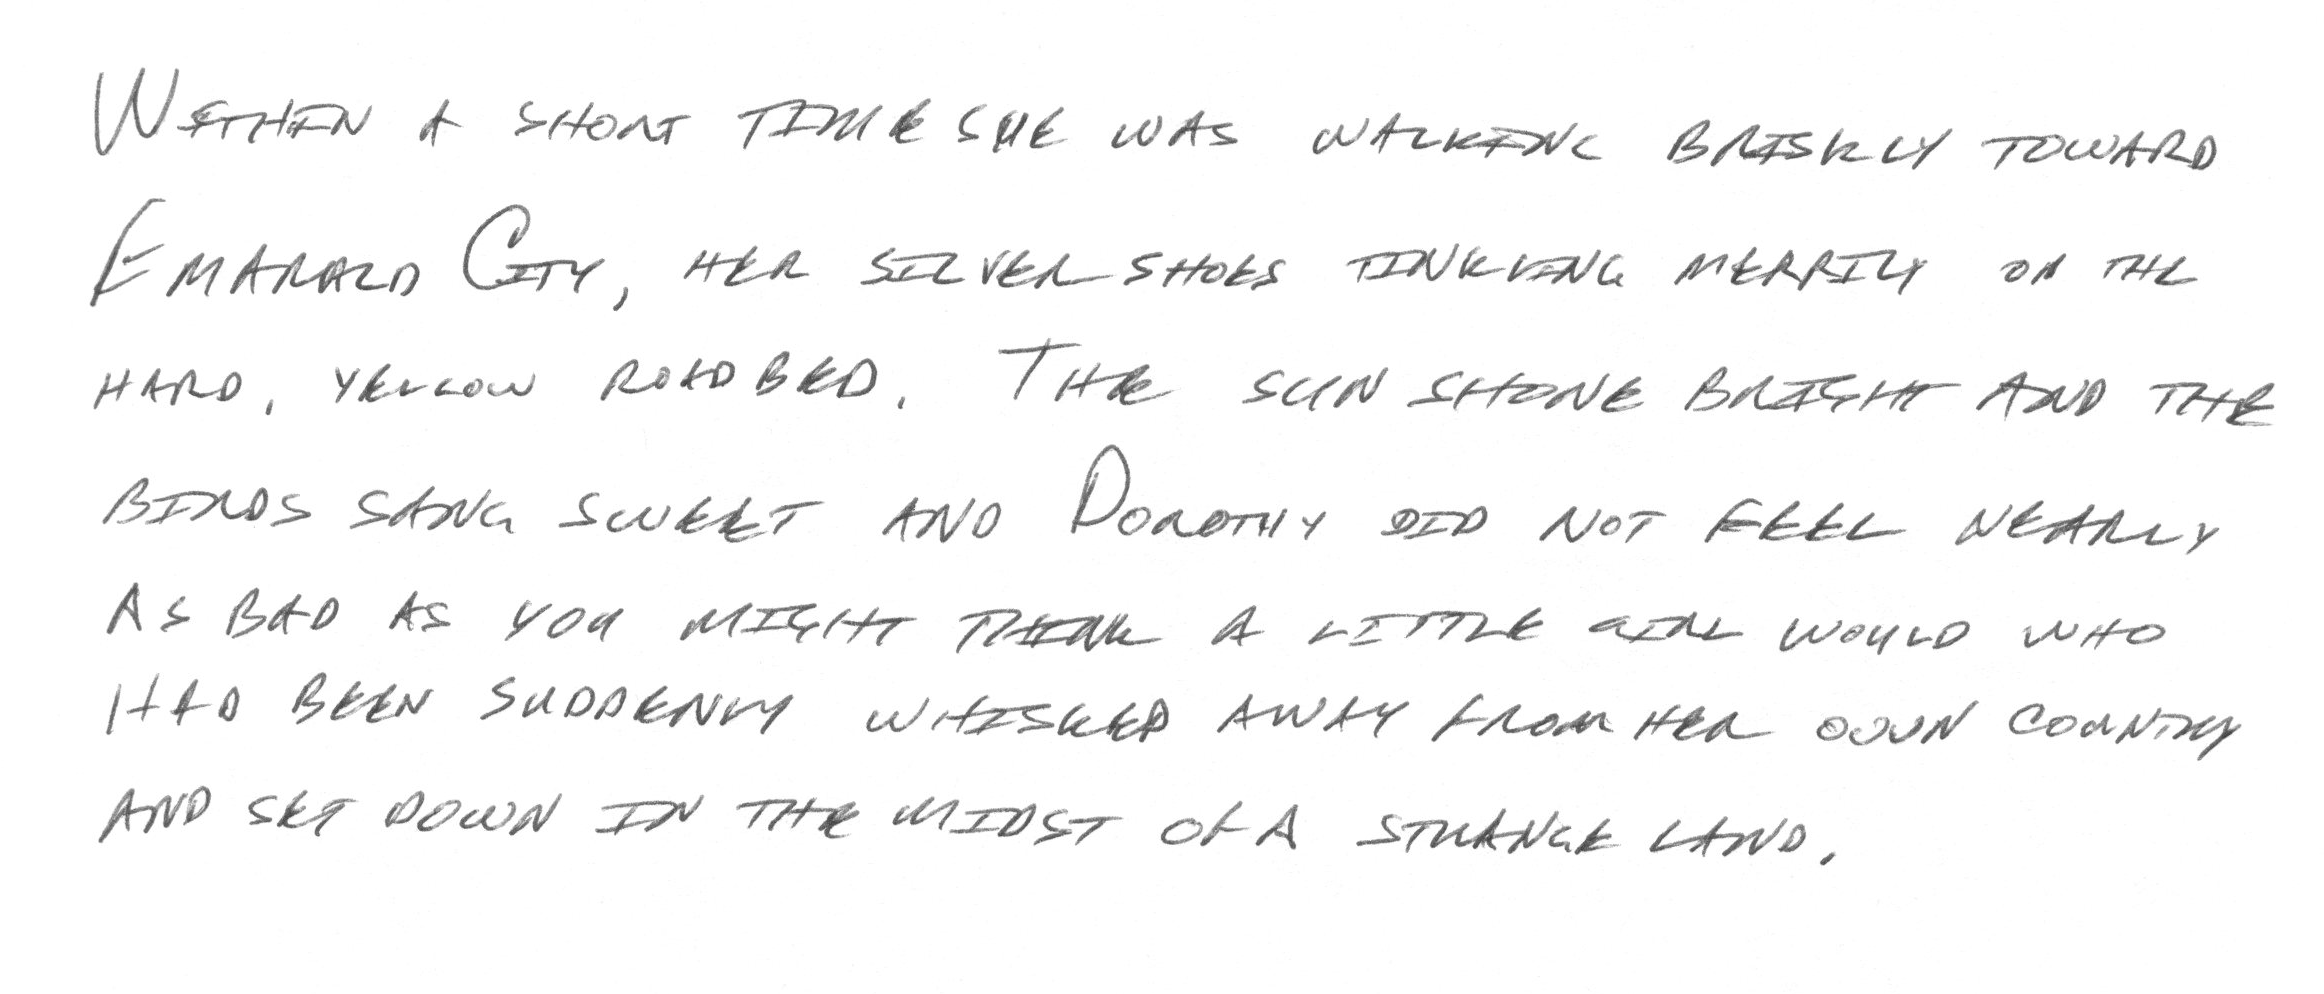 WITHIN A SHORT TIME SHE WAS WALKING BRISKLY TOWARD
EMARALD CITY, HER SILVER SHOES TINKLING MERRILY ON THE
HARD, YELLOW ROADBED. THE SUN SHONE BRIGHT AND THE
BIRDS SANG SWEET AND DOROTHY DID NOT FEEL NEARLY
AS BAD AS YOU MIGHT THINK A LITTLE GIRL WOULD WHO
HAD BEEN SUDDENLY WHISKED AWAY FROM HER OWN COUNTRY
AND SET DOWN IN THE MIDST OF A STRANGE LAND.